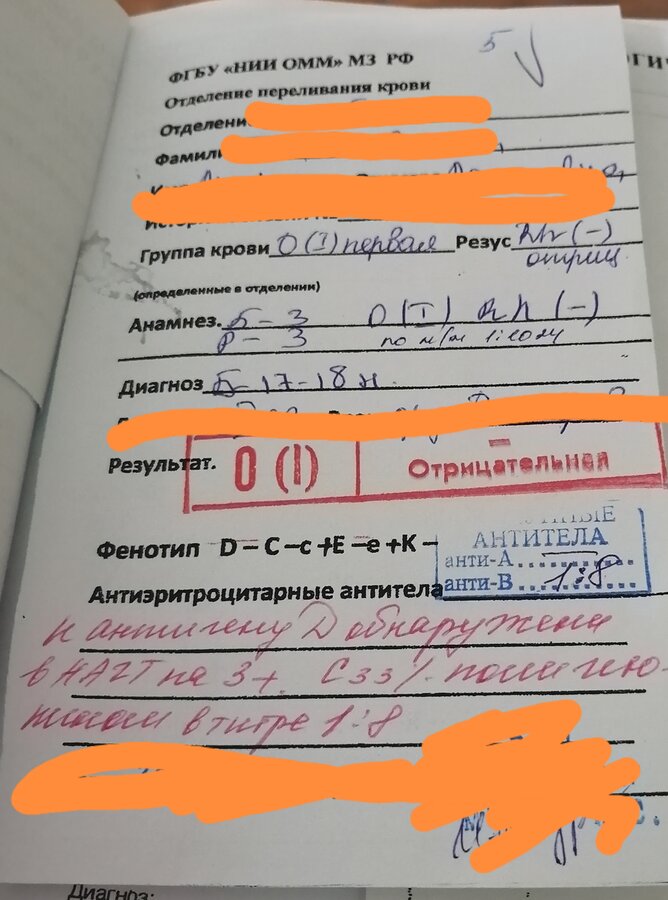 5
ФГБУ «НИИ ОММ» МЗ РФ
Отделение переливания крови
Отделени
Фамили
Группа крови O(I) первая Резус Rh (-)
отриц
(определенные в отделении)
Анамнез. Б - 3 O (I) Rh (-)
Р - 3 по
Диагноз Б-17-18 н.
Результат. O (I) Отрицательная
Фенотип D – C – c + E – e + K –
АНТИТЕЛА
анти-А
анти-В 1:8
Антиэритроцитарные антитела
к антигену D обнаружены
в НАГТ на 3+. С 33% полиглю-
кином в титре 1:8
Диагноз: